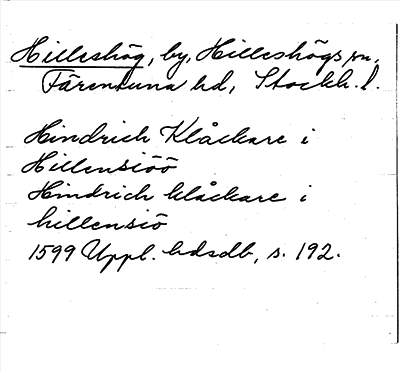 Hilleshög, by, Hilleshögs sn,
Färentuna hd, Stockh. l.
Hindrich Klåckare i
Hillensiöö
Hindrich klåckare i
hillensiö
1599 Uppl. hdsdb, s. 192.